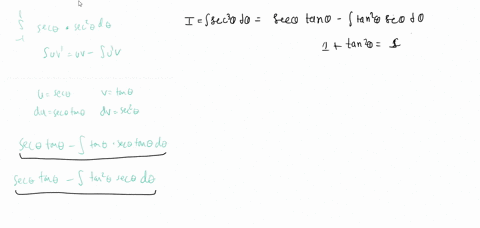 ∫₋₁¹ secθ • sec²θ dθ
∫uv' = uv - ∫u'v
u = secθ v = tanθ
du = secθtanθ dv = sec²θ
secθ tanθ - ∫ tanθ • secθ tanθ dθ
secθ tanθ - ∫ tan²θ secθ dθ
I = ∫sec³θ dθ = secθ tanθ - ∫ tan²θ secθ dθ
1 + tan²θ = s